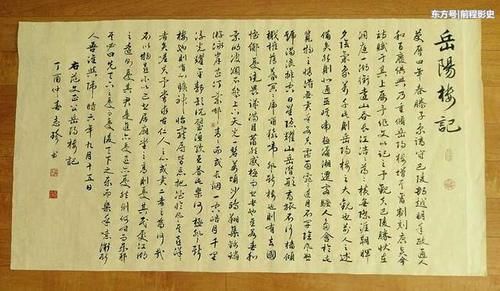 东方号|前程影史
岳陽樓記
慶曆四年春滕子京謫守巴陵郡越明年政通人
和百廢俱興乃重修岳陽樓增其舊制刻唐賢今
人詩賦于其上屬予作文以記之予觀夫巴陵勝狀在
洞庭一湖銜遠山吞長江浩浩湯湯橫無際涯朝暉
夕陰氣象萬千此則岳陽樓之大觀也前人之述
備矣然則北通巫峽南極瀟湘遷客騷人多會於此
覽物之情得無異乎若夫霪雨霏霏連月不開陰風怒
號濁浪排空日星隱耀山岳潛形商旅不行檣傾
楫摧薄暮冥冥虎嘯猿啼登斯樓也則有去國
懷鄉憂讒畏譏滿目蕭然感極而悲者矣至若春和
景明波瀾不驚上下天光一碧萬頃沙鷗翔集錦鱗
游泳岸芷汀蘭郁郁青青而或長煙一空皓月千里
浮光躍金靜影沉璧漁歌互答此樂何極登斯
樓也則有心曠神怡寵辱皆忘把酒臨風其喜洋洋
者矣嗟夫予嘗求古仁人之心或異二者之為何哉
不以物喜不以己悲居廟堂之高則憂其民處江湖
之遠則憂其君是進亦憂退亦憂然則何時而樂耶
其必曰先天下之憂而憂後天下之樂而樂乎噫微斯
人吾誰與歸時六年九月十五日
右范文正公岳陽樓記
丁酉仲春志 書